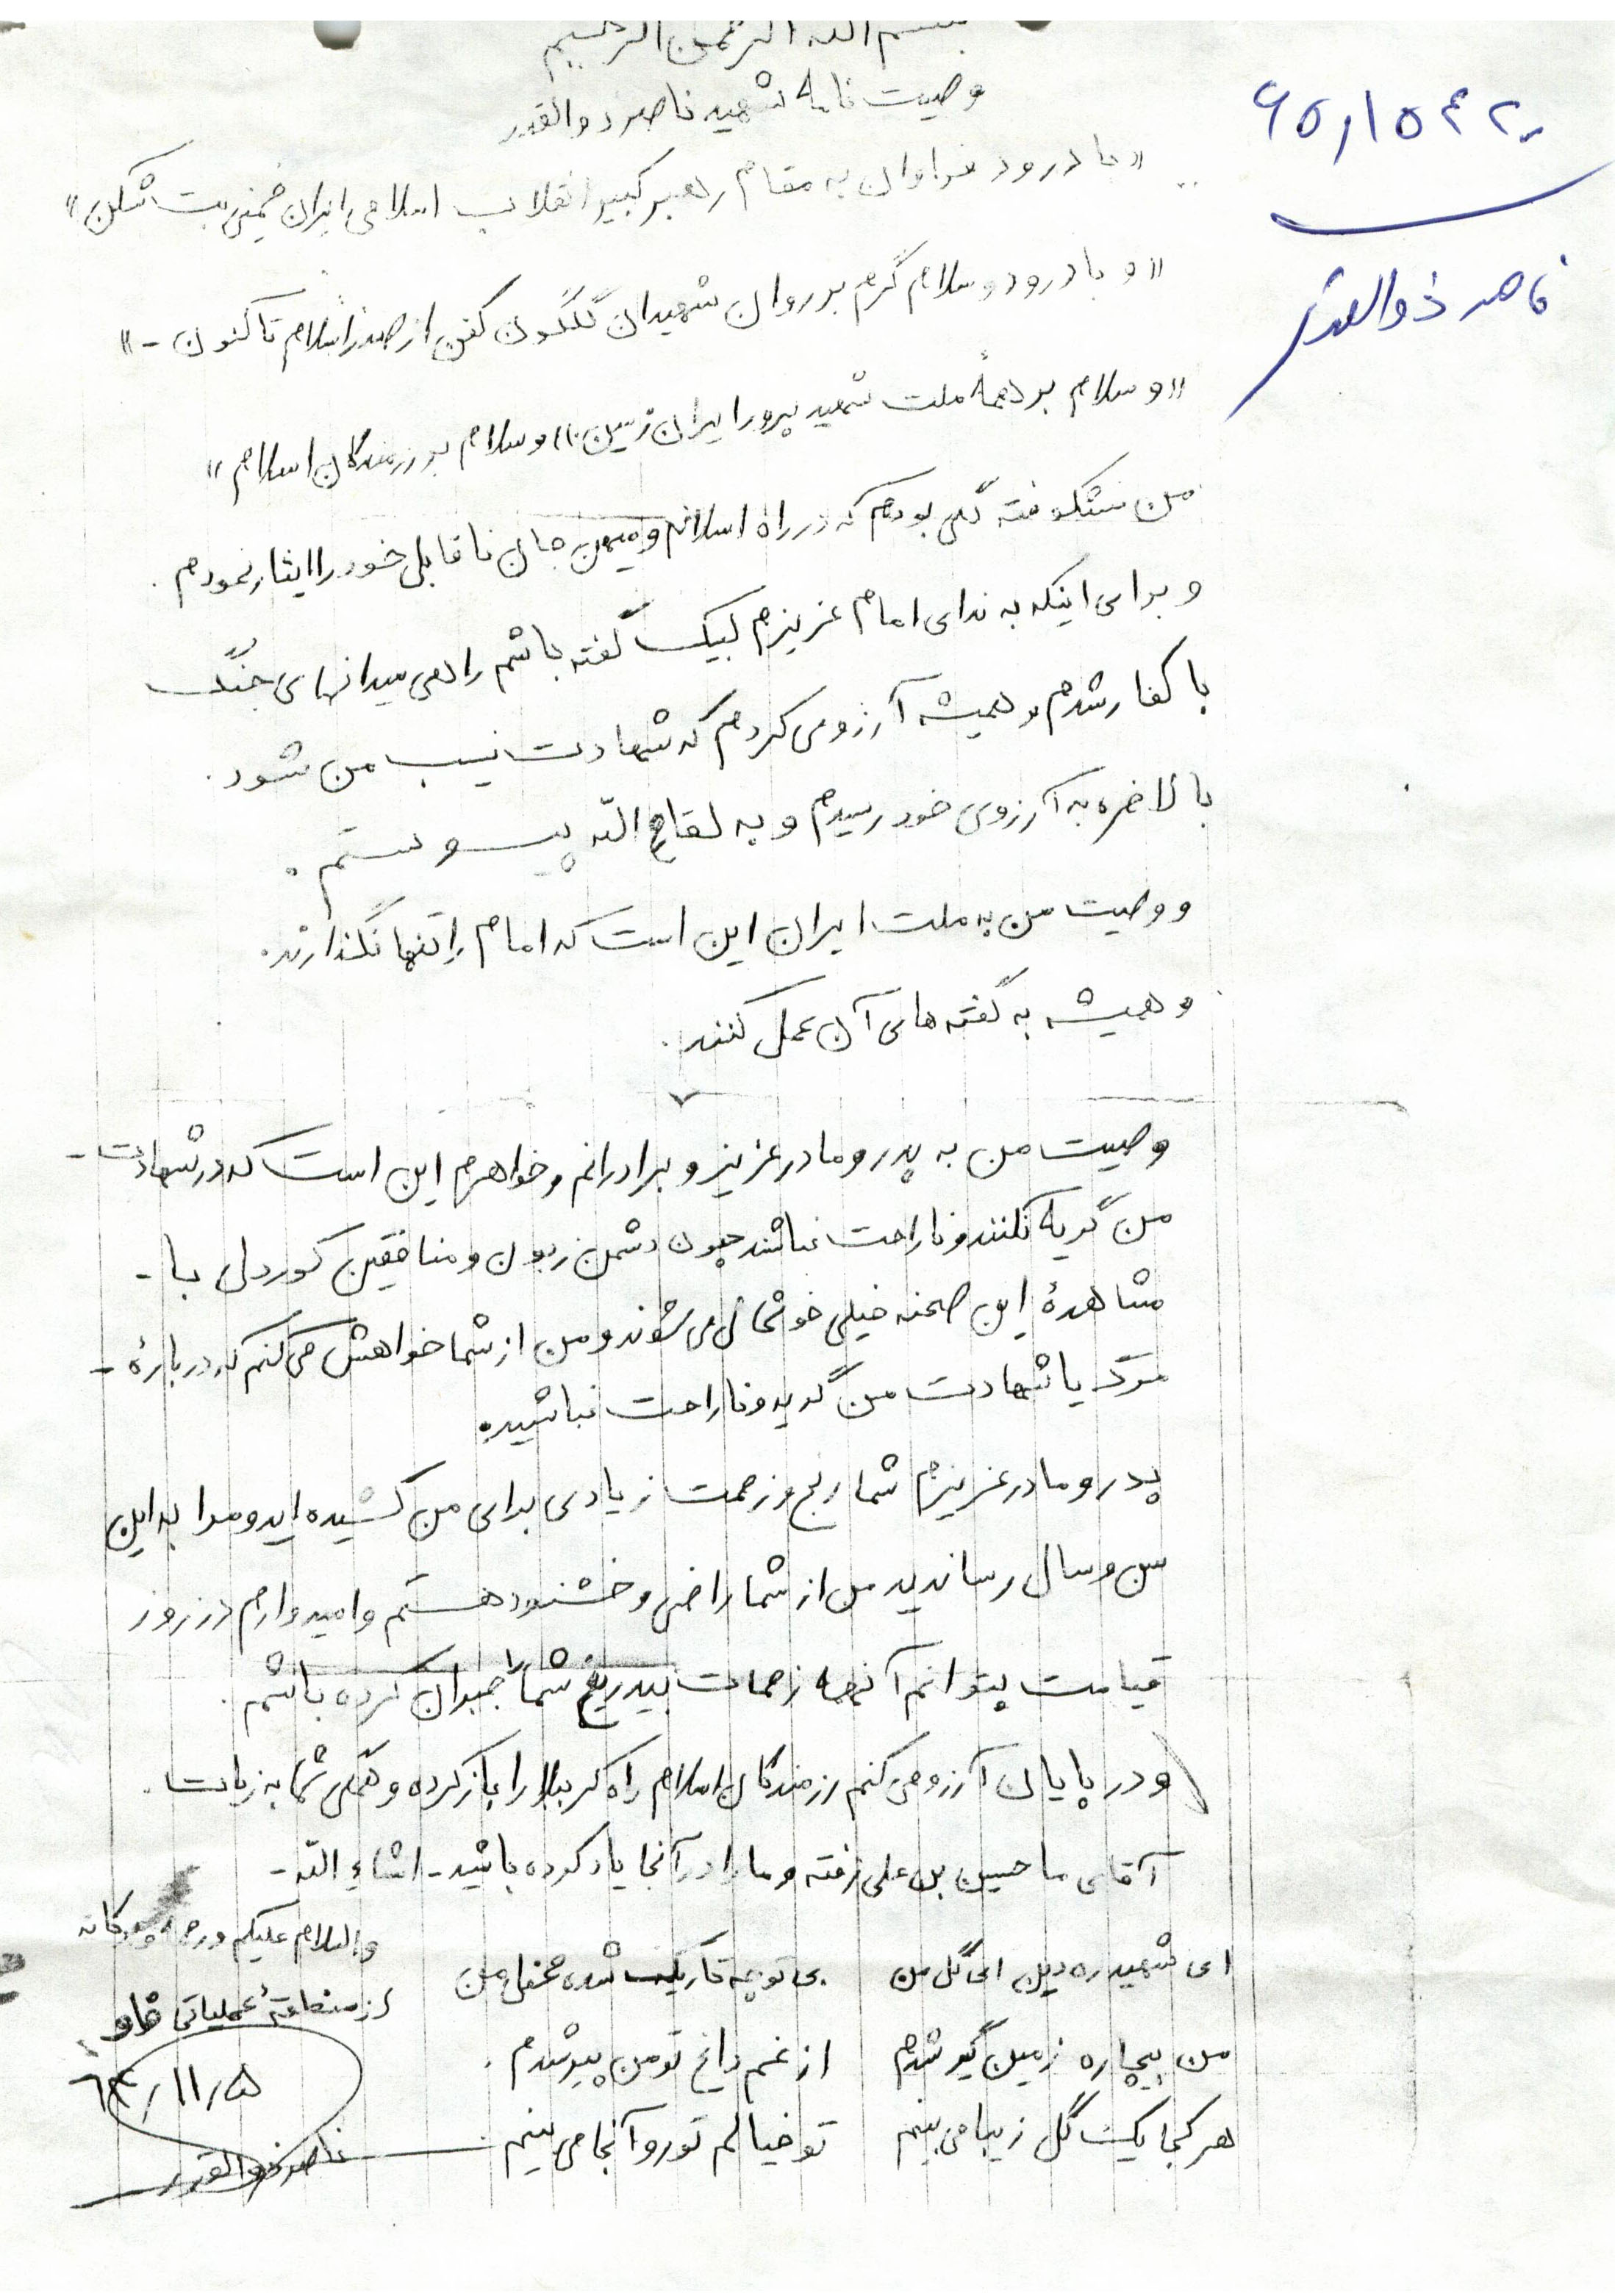 بسم الله الرحمن الرحیم
وصیت نامه شهید ناصر ذوالقدر
۶۵۱۱۵۴۲۰
ناصر ذوالقدر
«با درود فراوان به مقام رهبر کبیر انقلاب اسلامی ایران خمینی بت شکن»
«و با درود و سلام گرم بر روان شهیدان گلگون کفن از صدر اسلام تا کنون -»
«و سلام بر همهٔ ملت شهید پرور ایران زمین» «و سلام بر رزمندگان اسلام»
من شکوفته گلی بودم که در راه اسلام و میهن جان ناقابل خود را ایثار نمودم.
و برای اینکه به ندای امام عزیزم لبیک گفته باشم راهی میدانهای جنگ
با کفار شدم و همیشه آرزو می کردم که شهادت نسیب من شود.
بالاخره به آرزوی خود رسیدم و به لقاء الله پیوستم.
و وصیت من به ملت ایران این است که امام را تنها نگذارند.
و همیشه به گفته های آن عمل کنند.
وصیت من به پدر و مادر عزیز و برادرانم و خواهرم این است که در شهادت -
من گریه نکنند و ناراحت نباشند چون دشمن زبون و منافقین کوردل با -
مشاهدهٔ این صحنه خیلی خوشحال می شوند و من از شما خواهش می کنم که در بارهٔ -
مرگ یا شهادت من گریه و ناراحت نباشید.
پدر و مادر عزیزم شما رنج و زحمت زیادی برای من کشیده اید و مرا به این
سن و سال رساندید من از شما راضی و خشنود هستم و امیدوارم در روز
قیامت بتوانم آنهمه زحمات بیدریغ شما را جبران کرده باشم.
و در پایان آرزو می کنم رزمندگان اسلام راه کربلا را باز کرده و همگی شما به زیارت
آقای ما حسین بن علی رفته و ما را در آنجا یاد کرده باشید - انشاء الله -
والسلام علیکم و رحمة و برکاته
ای شهید ره دین ای گل من بی تو چه تاریک شده محفل من
از منطقهٔ عملیاتی فاو
من بیچاره زمین گیر شدم از غم داغ تو من پیر شدم.
۶۴/۱۱/۵
هر کجا یک گل زیبا می بینم تو خیالم تو رو آنجا می بینم
ناصر ذوالقدر